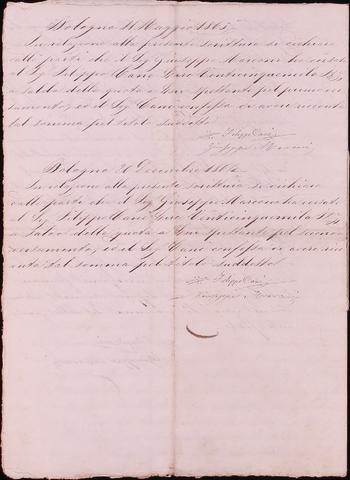 Bologna 11 Maggio 1865
In relazione alla presente scrittura si dichiara
dalle parti che il Sig Giuseppe Marconi ha versato
il Sig Filippo Cané Lire Venticinquemila
a saldo della quota a Lui spettante pel primo
versamento, ed il Sig Cané confessa di avere ricevuto
tal somma pel titolo suddetto
Filippo Cané
Giuseppe Marconi
Bologna 20 Dicembre 1865
In relazione alla presente scrittura si dichiara
dalle parti che il Sig Giuseppe Marconi ha versato
il Sig Filippo Cané Lire Venticinquemila
a Saldo della quota a Lui spettante pel secondo
versamento, ed il Sig Cané confessa di avere rice
vuta tal somma pel titolo suddetto
Filippo Cané
Giuseppe Marconi